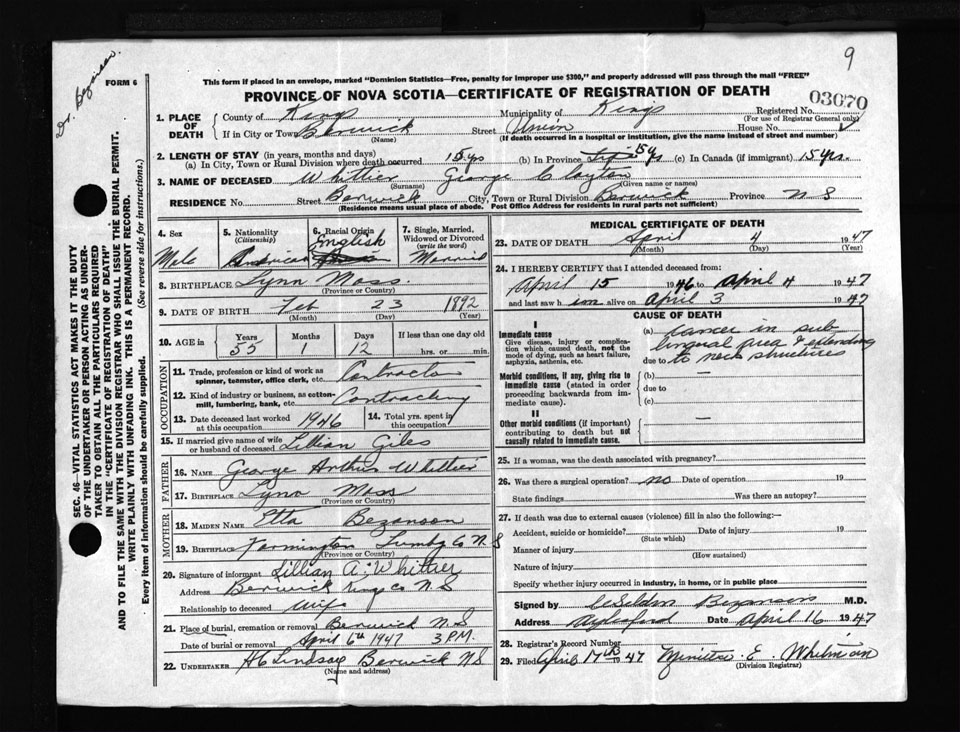 9
Dr. Bezanson.
FORM 6
This form if placed in an envelope, marked "Dominion Statistics—Free, penalty for improper use $300," and properly addressed will pass through the mail "FREE"
PROVINCE OF NOVA SCOTIA—CERTIFICATE OF REGISTRATION OF DEATH
03070
SEC. 46—VITAL STATISTICS ACT MAKES IT THE DUTY
OF THE UNDERTAKER OR PERSON ACTING AS UNDER-
TAKER TO OBTAIN ALL THE PARTICULARS REQUIRED
IN THE "CERTIFICATE OF REGISTRATION OF DEATH"
AND TO FILE THE SAME WITH THE DIVISION REGISTRAR WHO SHALL ISSUE THE BURIAL PERMIT.
WRITE PLAINLY WITH UNFADING INK. THIS IS A PERMANENT RECORD.
Every item of information should be carefully supplied. (See reverse side for instructions.)
1. PLACE OF DEATH County of Kings Municipality of Kings Registered No.
(For use of Registrar General only)
If in City or Town Berwick Street Union House No.
(Name) (If death occurred in a hospital or institution, give the name instead of street and number)
2. LENGTH OF STAY (in years, months and days)
(a) In City, Town or Rural Division where death occurred 15 yrs (b) In Province 15 yrs (c) In Canada (if immigrant) 15 yrs.
3. NAME OF DECEASED Whittier George Clayton
(Surname) (Given name or names)
RESIDENCE No. Street Berwick City, Town or Rural Division Berwick Province N S
(Residence means usual place of abode. Post Office Address for residents in rural parts not sufficient)
4. Sex 5. Nationality (Citizenship) 6. Racial Origin 7. Single, Married, Widowed or Divorced (write the word)
Male American English Married
8. BIRTHPLACE Lynn Mass.
(Province or Country)
9. DATE OF BIRTH Feb 23 1892
(Month) (Day) (Year)
10. AGE in Years Months Days If less than one day old
55 1 12 hrs. or min.
OCCUPATION
11. Trade, profession or kind of work as spinner, teemster, office clerk, etc. Contractor
12. Kind of industry or business, as cotton-mill, lumbering, bank, etc. Contracting
13. Date deceased last worked at this occupation 1946 14. Total yrs. spent in this occupation
15. If married give name of wife or husband of deceased Lillian Giles
FATHER
16. NAME George Arthur Whittier
17. BIRTHPLACE Lynn Mass
(Province or Country)
MOTHER
18. MAIDEN NAME Etta Bezanson
19. BIRTHPLACE Farmington Lunbg Co N S
(Province or Country)
20. Signature of informant Lillian A. Whittier
Address Berwick Kings Co N S
Relationship to deceased Wife
21. Place of burial, cremation or removal Berwick N S
Date of burial or removal April 6th 1947 3 P.M.
22. UNDERTAKER H C Lindsay Berwick N S
(Name and address)
MEDICAL CERTIFICATE OF DEATH
23. DATE OF DEATH April 4 1947
(Month) (Day) (Year)
24. I HEREBY CERTIFY that I attended deceased from:
April 15 1946 to April 4 1947
and last saw him alive on April 3 1947
CAUSE OF DEATH
I
Immediate cause
Give disease, injury or complication which caused death, not the mode of dying, such as heart failure, asphyxia, asthenia, etc.
(a) Cancer in sub
lingual area & extending
due to to neck structures
Morbid conditions, if any, giving rise to immediate cause (stated in order proceeding backwards from immediate cause).
(b) —
due to
(c)
II
Other morbid conditions (if important) contributing to death but not causally related to immediate cause.
—
25. If a woman, was the death associated with pregnancy?
26. Was there a surgical operation? no Date of operation 19
State findings Was there an autopsy?
27. If death was due to external causes (violence) fill in also the following:—
Accident, suicide or homicide? Date of injury 19
(State which)
Manner of injury
(How sustained)
Nature of injury
Specify whether injury occurred in industry, in home, or in public place
Signed by Bezanson M.D.
Address Aylesford Date April 16 1947
28. Registrar's Record Number
29. Filed April 17th 1947 E. Whitman
(Division Registrar)